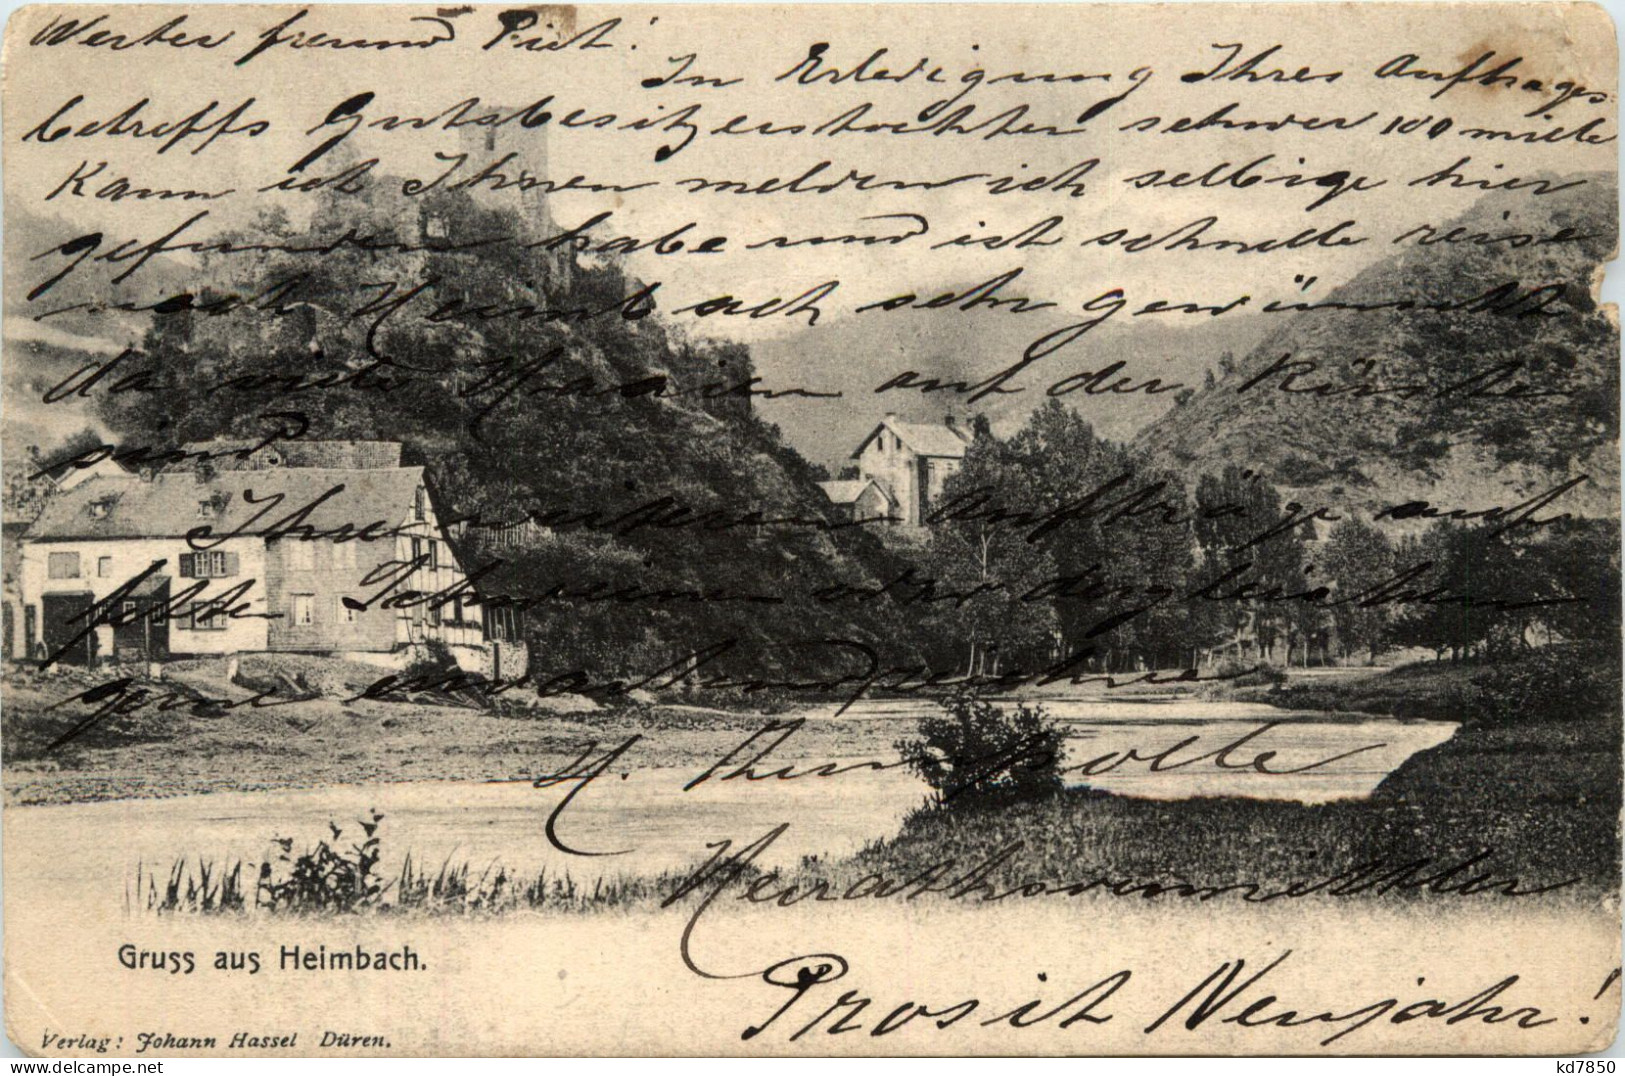 Werter freund Piet!
In Erledigung Ihres Auftrages
betreffs Gutsbesitzerstochter schwer 100 mille
Kann ich Ihnen melden ich selbige hier
gefunden habe und ich schnelle reise
nach Heimbach sehr gewünscht
da viele Haaien auf der Küste
sind.
Ihre weiteren Aufträge auch
fette Schweine oder dergleichen
gern entgegen zeichne
H. Thumpolle
Heirathsvermittler
Prosit Neujahr!
Gruss aus Heimbach.
Verlag: Johann Hassel Düren.
kd7850